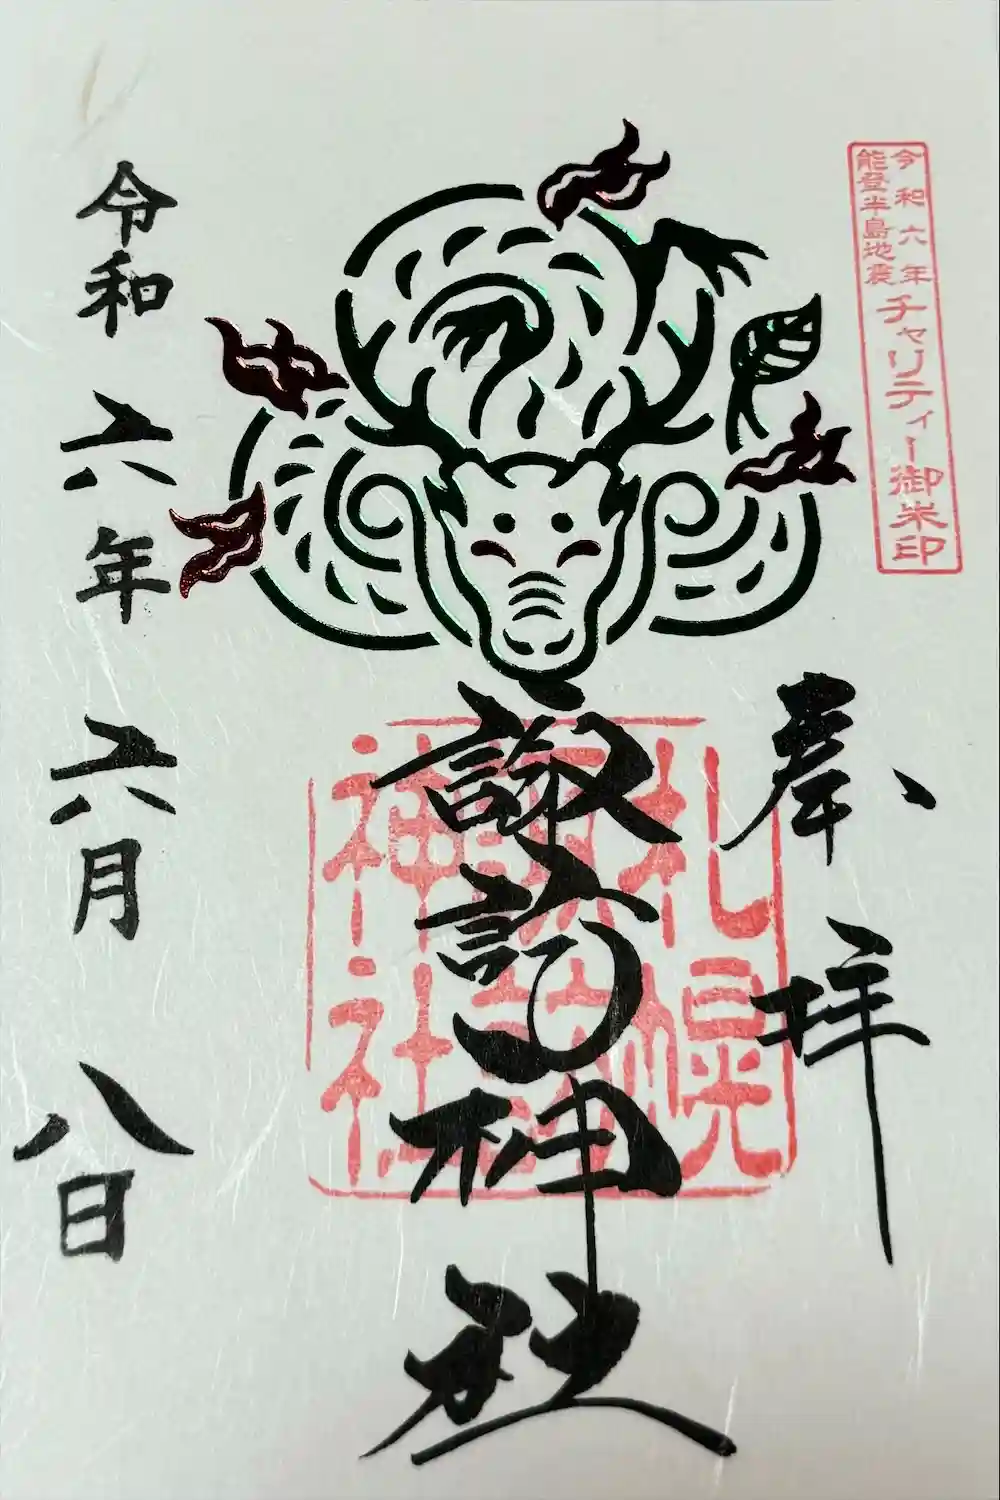 令和六年
能登半島地震
チャリティー御朱印
奉拝
諏訪神社
札幌
諏訪
神社
令和六年六月八日